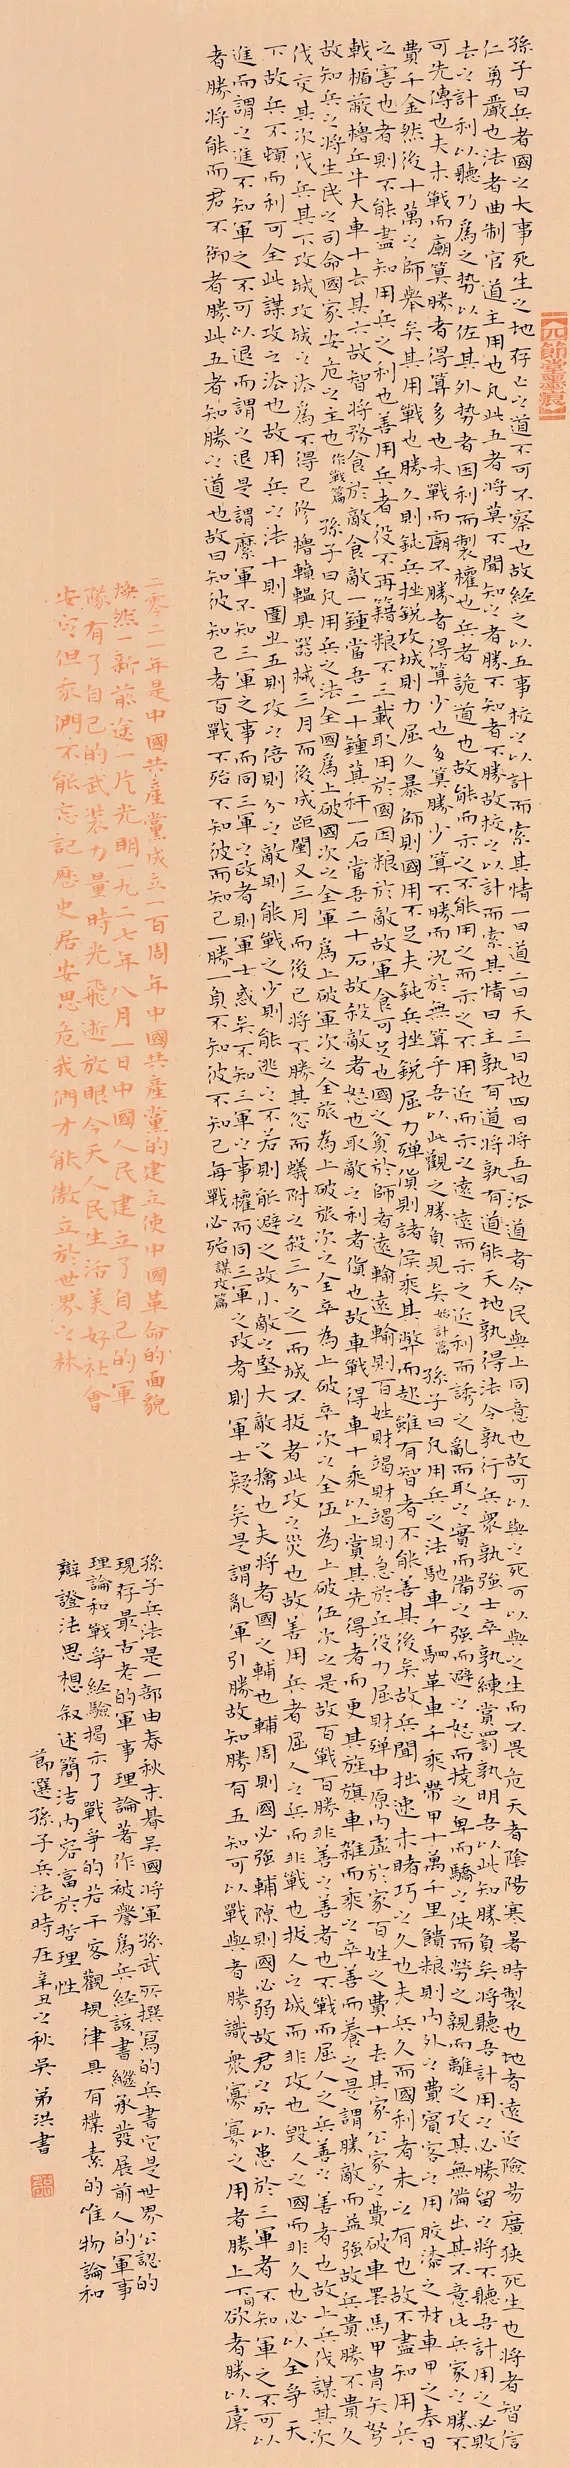 【四節堂墨痕】
孫子曰兵者國之大事死生之地存亡之道不可不察也故經之以五事校之以計而索其情一曰道二曰天三曰地四曰將五曰法道者令民與上同意也故可以與之死可以與之生而不畏危天者陰陽寒暑時製也地者遠近險易廣狹死生也將者智信
仁勇嚴也法者曲制官道主用也凡此五者將莫不聞知之者勝不知者不勝故校之以計而索其情曰主孰有道將孰有道能天地孰得法令孰行兵衆孰強士卒孰練賞罰孰明吾以此知勝負矣將聽吾計用之必勝留之將不聽吾計用之必敗
去之計利以聽乃爲之勢以佐其外勢者因利而製權也兵者詭道也故能而示之不能用之而示之不用近而示之遠遠而示之近利而誘之亂而取之實而備之強而避之怒而撓之卑而驕之佚而勞之親而離之攻其無備出其不意此兵家之勝不
可先傳也夫未戰而廟算勝者得算多也未戰而廟不勝者得算少也多算勝少算不勝而況於無算乎吾以此觀之勝負見矣 始計篇 孫子曰凡用兵之法馳車千駟革車千乘帶甲十萬千里饋糧則內外之費賓客之用膠漆之材車甲之奉日
費千金然後十萬之師舉矣其用戰也勝久則鈍兵挫銳攻城則力屈久暴師則國用不足夫鈍兵挫銳屈力殫貨則諸侯乘其弊而起雖有智者不能善其後矣故兵聞拙速未睹巧之久也夫兵久而國利者未之有也故不盡知用兵
之害也者則不能盡知用兵之利也善用兵者役不再籍糧不三載取用於國因糧於敵故軍食可足也國之貧於師者遠輸遠輸則百姓財竭財竭則急於丘役力屈財殫中原內虛於家百姓之費十去其家公家之費破車罷馬甲冑矢弩
戟楯蔽櫓丘牛大車十去其六故智將務食於敵食敵一鍾當吾二十鍾萁秆一石當吾二十石故殺敵者怒也取敵之利者貨也故車戰得車十乘以上賞其先得者而更其旌旗車雜而乘之卒善而養之是謂勝敵而益強故兵貴勝不貴久
故知兵之將生民之司命國家安危之主也 作戰篇 孫子曰凡用兵之法全國爲上破國次之全軍爲上破軍次之全旅為上破旅次之全卒為上破卒次之全伍為上破伍次之是故百戰百勝非善之善者也不戰而屈人之兵善之善者也故上兵伐謀其次
伐交其次伐兵其下攻城攻城之法爲不得已修櫓轒轀具器械三月而後成距闉又三月而後已將不勝其忿而蟻附之殺三分之一而城不拔者此攻之災也故善用兵者屈人之兵而非戰也拔人之城而非攻也毀人之國而非久也必以全爭天
下故兵不頓而利可全此謀攻之法也故用兵之法十則圍之五則攻之倍則分之敵則能戰之少則能逃之不若則能避之故小敵之堅大敵之擒也夫將者國之輔也輔周則國必強輔隙則國必弱故君之所以患於三軍者不知軍之不可以
進而謂之進不知軍之不可以退而謂之退是謂縻軍不知三軍之事而同三軍之政者則軍士惑矣不知三軍之事權而同三軍之政者則軍士疑矣是謂亂軍引勝故知勝有五知可以戰與者勝識衆寡之用者勝上下同欲者勝以虞
者勝將能而君不御者勝此五者知勝之道也故曰知彼知己者百戰不殆不知彼而知己一勝一負不知彼不知己每戰必殆 謀攻篇
二零二一年是中國共產黨成立一百周年中國共產黨的建立使中國革命的面貌
煥然一新前途一片光明一九二七年八月一日中國人民建立了自己的軍
隊有了自己的武裝力量時光飛逝放眼今天人民生活美好社會
安定但我們不能忘記歷史居安思危我們才能傲立於世界之林
孫子兵法是一部由春秋末吳國將軍孫武所撰寫的兵書它是世界公認的
現存最古老的軍事理論著作被譽爲兵經該書繼承發展前人的軍事
理論和戰爭經驗揭示了戰爭的若干客觀規律具有樸素的唯物論和
辯證法思想叙述簡潔內容富於哲理性
節選孫子兵法時在辛丑之秋吳弟洪書